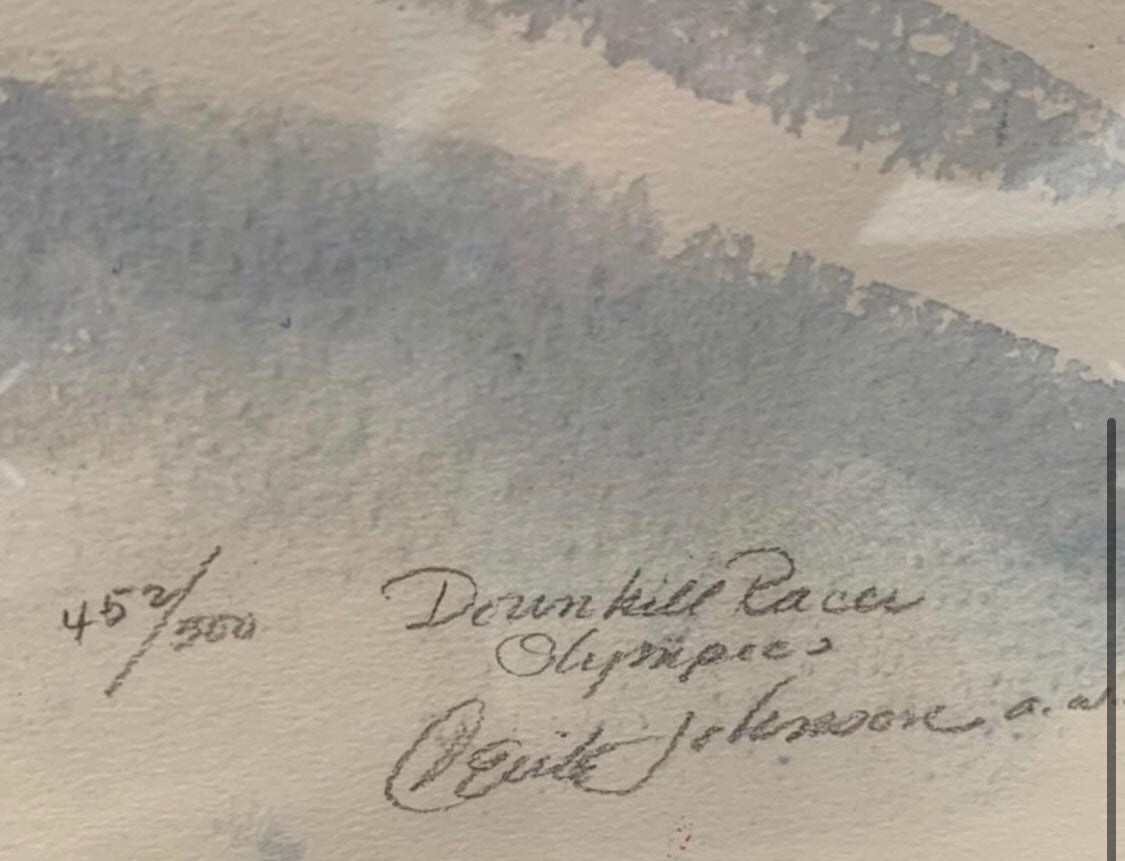 452/500
Downhill Racer
Olympics
Johnson a.w.